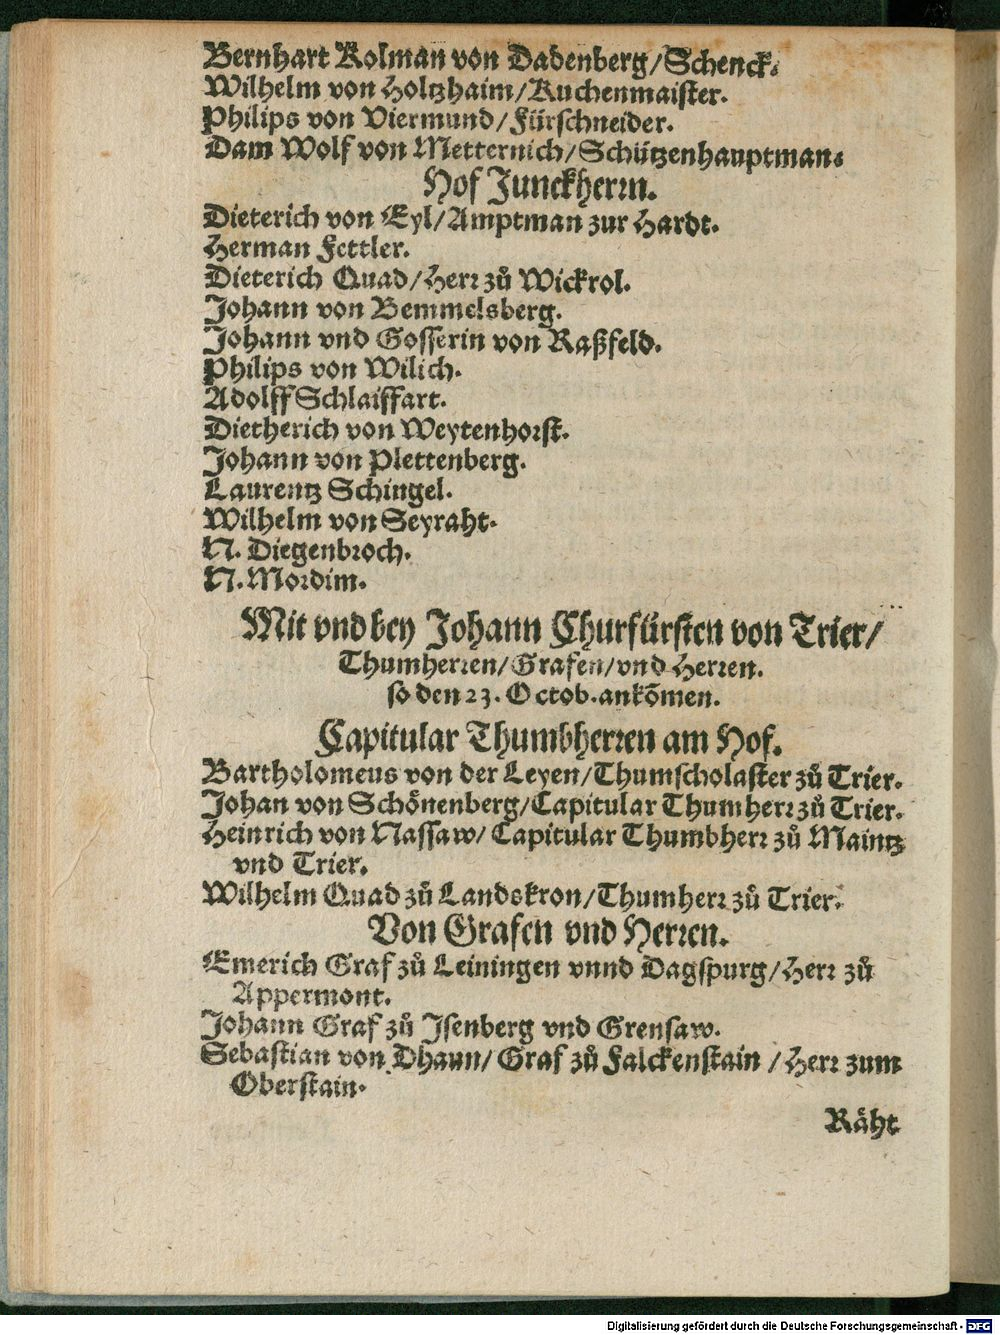 Bernhart Kolman von Dadenberg/Schenck.
Wilhelm von Holtzhaim/Kuchenmaister.
Philips von Viermund/Fürschneider.
Dam Wolf von Metternich/Schützenhauptman.
Hof Junckherrn.
Dieterich von Eyl/Amptman zur Hardt.
Herman Fettler.
Dieterich Quad/Herr zů Wickrol.
Johann von Bemmelsberg.
Johann vnd Gosserin von Raßfeld.
Philips von Wilich.
Adolff Schlaiffart.
Dietherich von Weytenhorst.
Johann von Plettenberg.
Laurentz Schingel.
Wilhelm von Seyraht.
N. Diegenbroch.
N. Mordim.
Mit vnd bey Johann Churfürsten von Trier/
Thumherren/Grafen/vnd Herren.
so den 23. Octob. ankõmen.
Capitular Thumbherren am Hof.
Bartholomeus von der Leyen/Thumscholaster zů Trier.
Johan von Schönenberg/Capitular Thumherr zů Trier.
Heinrich von Nassaw/Capitular Thumbherr zů Maintz
vnd Trier.
Wilhelm Quad zů Landskron/Thumherr zů Trier.
Von Grafen vnd Herren.
Emerich Graf zů Leiningen vnnd Dagspurg/Herr zů
Appermont.
Johann Graf zů Jsenberg vnd Grensaw.
Sebastian von Dhaun/Graf zů Falckenstain/Herr zum
Oberstain.
Räht
Digitalisierung gefördert durch die Deutsche Forschungsgemeinschaft - DFG